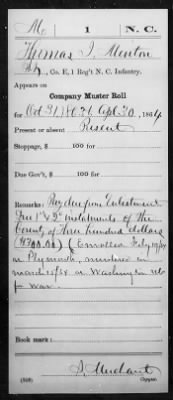 M | 1 | N. C.
Thomas J. Merton
Co. E, 1 Reg't N. C. Infantry.
Appears on
Company Muster Roll
for Oct 31/63 to Apl. 30, 1864
Present or absent Present
Stoppage, $ 100 for
Due Gov't, $ 100 for
Remarks: Pay due from Enlistment
Due 1st & 2d instalments of the
bounty of three hundred dollars
($300.00) Enrolled Feby
Plymouth, mustered in
march at Washington
for war.
Book mark:
Copyist.